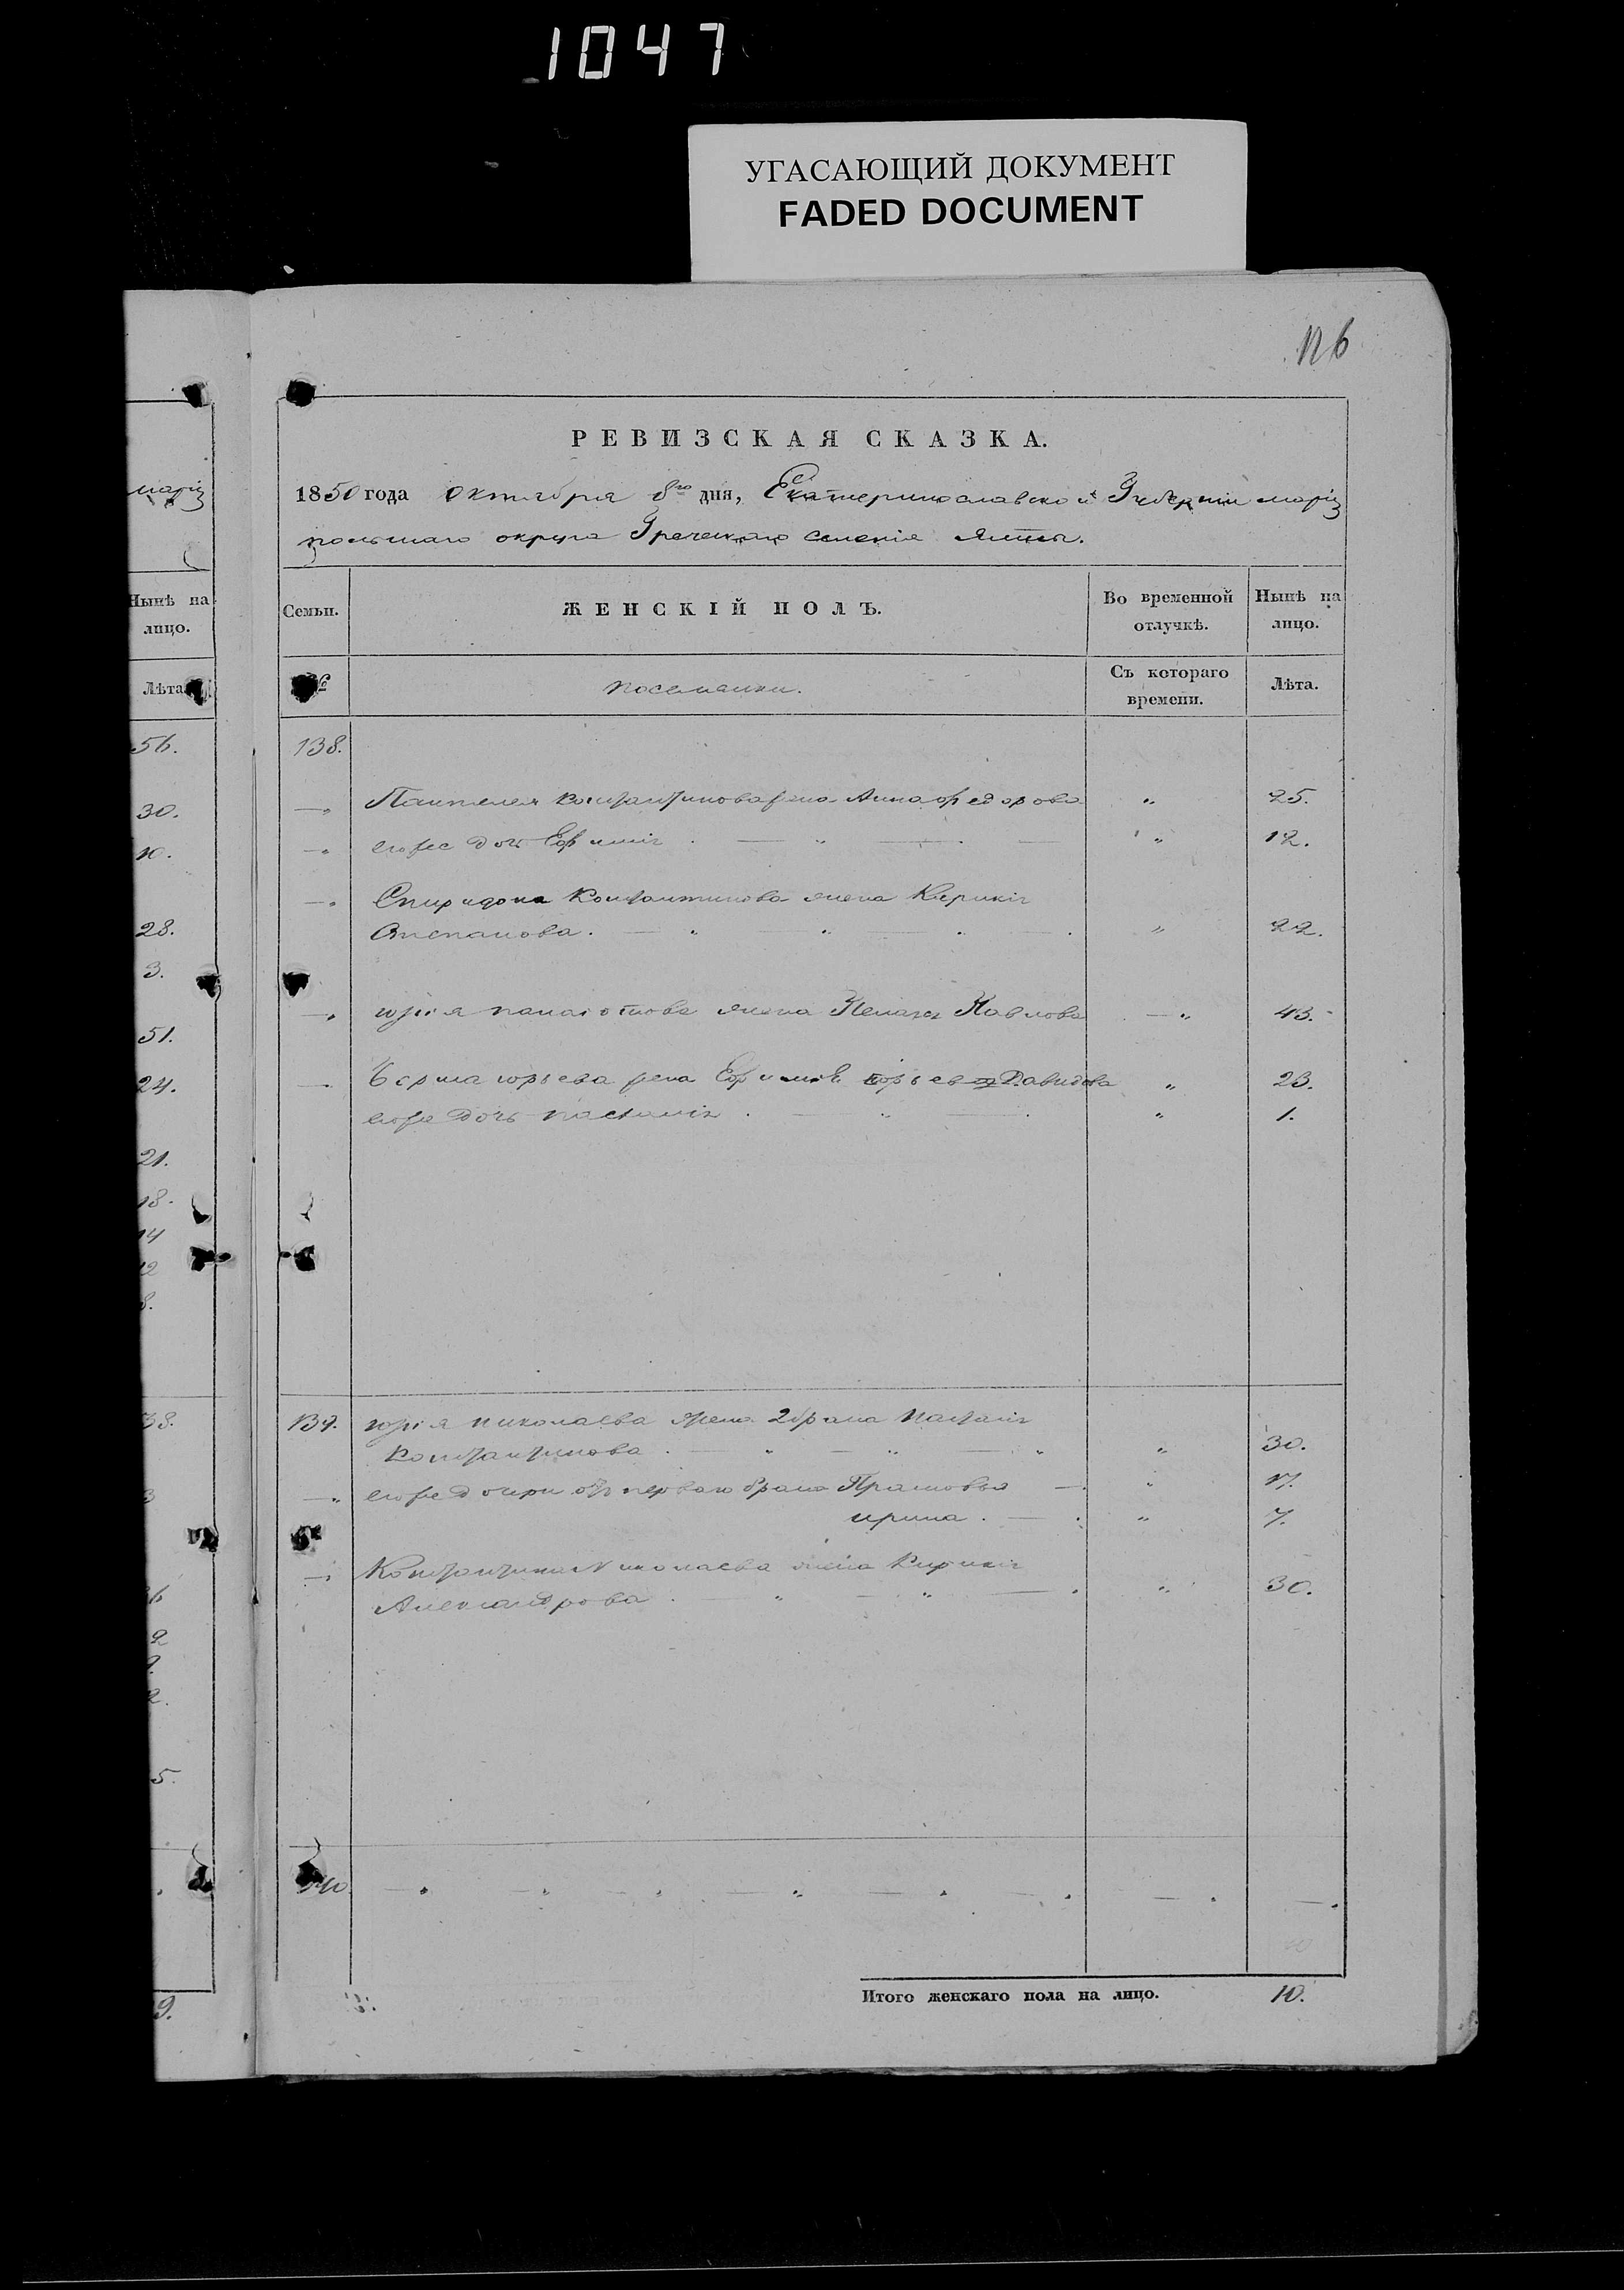 1047
УГАСАЮЩИЙ ДОКУМЕНТ
FADED DOCUMENT
126
РЕВИЗСКАЯ СКАЗКА.
1850 года Октября 8го дня, Екатеринославской Губерніи маріу
польшаго округа Греческаго селенія Ялты.
Семьи.
ЖЕНСКІЙ ПОЛЪ.
Во временной отлучкѣ.
Нынѣ на лицо.
№
поселянки.
Съ котораго времени.
Лѣта.
138.
Пантелея Константинова жена Анна Федорова " 25.
егоже дочь Ефимія " 12.
Спиридона Константинова жена Кирикія
Степанова. " 22.
юрія панаіотова жена Пелагея Павлова " 43.
юрьева жена Давидова " 23.
егоже дочь настасія " 1.
139. юрія николаева жена 2 брака настасія
Константинова " 30.
егоже дочери отъ перваго брака Прасковья " 17.
ирина. " 7.
Константина Николаева жена Кирикія
Александрова " 30.
140.
Итого женскаго пола на лицо. 10.
маріу
Нынѣ на
лицо.
Лѣта
56.
30.
10.
28.
3.
51.
24.
21.
18.
14
12
8.
38.
3
2
2.
5.
9.